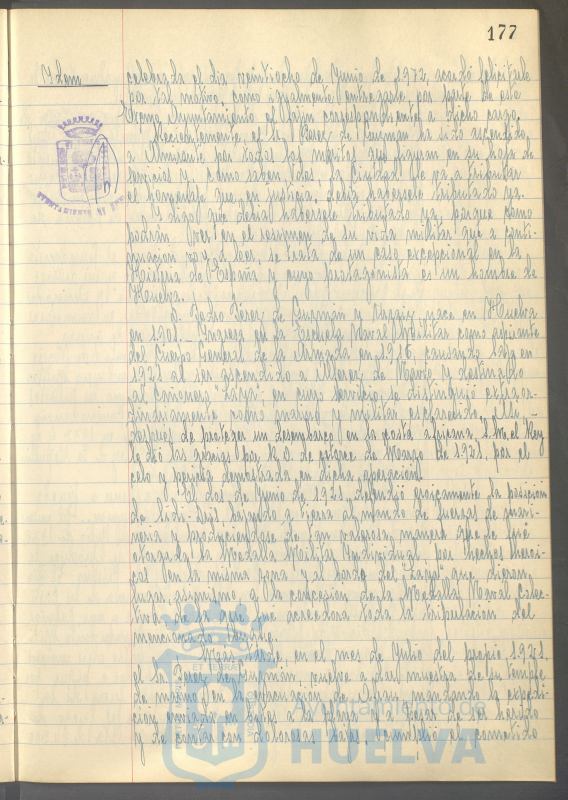 177
Idem
celebrada el día veintiocho de Junio de 1972, acordó felicitarle
por tal motivo, como igualmente entregarle por parte de este
Excmo. Ayuntamiento el fajín correspondiente a dicho cargo.
Recientemente, el Sr. Pérez de Guzmán ha sido ascendido
a Almirante por todos los méritos que figuran en su hoja de
servicios y, como saben Vdes, la Ciudad le va a tributar
el homenaje que, en justicia, debía habérsele tributado ya.
Y digo que debía habérsele tributado ya, porque como
podrán ver en el resumen de su vida militar que a conti-
nuación voy a leer, se trata de un caso excepcional en la
Historia de España y cuyo protagonista es un hombre de
Huelva.
D. Pedro Pérez de Guzmán y Urzáiz, nace en Huelva
en 1901.- Ingresa en la Escuela Naval Militar como aspirante
del Cuerpo General de la Armada en 1916, causando baja en
1921 al ser ascendido a Alférez de Navío y destinado
al cañonero "Laya" en cuyo servicio se distinguió extraor-
dinariamente como marino y militar esclarecido.
después de proteger un desembarco en la costa africana, S.M. el Rey
le dió las gracias por R.O. de catorce de Marzo de 1921, por el
celo y pericia demostrada en dicha operación.
El dos de Junio de 1921, defendió heroicamente la posición
de Sidi-Dris, bajando a tierra al mando de fuerzas de mari-
nería y produciéndose de tan valerosa manera que le fué
otorgada la Medalla Militar Individual por hechos heroi-
cos en la misma zona y al bordo del "Laya" que dieron
lugar, asimismo, a la concesión de la Medalla Naval Colec-
tiva de la que fué acreedora toda la tripulación del
mencionado buque.
Más tarde, en el mes de Julio del propio 1921,
el Sr. Pérez de Guzmán, vuelve a dar muestra de su temple
de marino en la evacuación de Afrau, mandando la expedi-
ción enviada en botes a la playa y a pesar de ser herido
y de contar con dolorosas bajas, cumplió el cometido
Ayuntamiento de
HUELVA